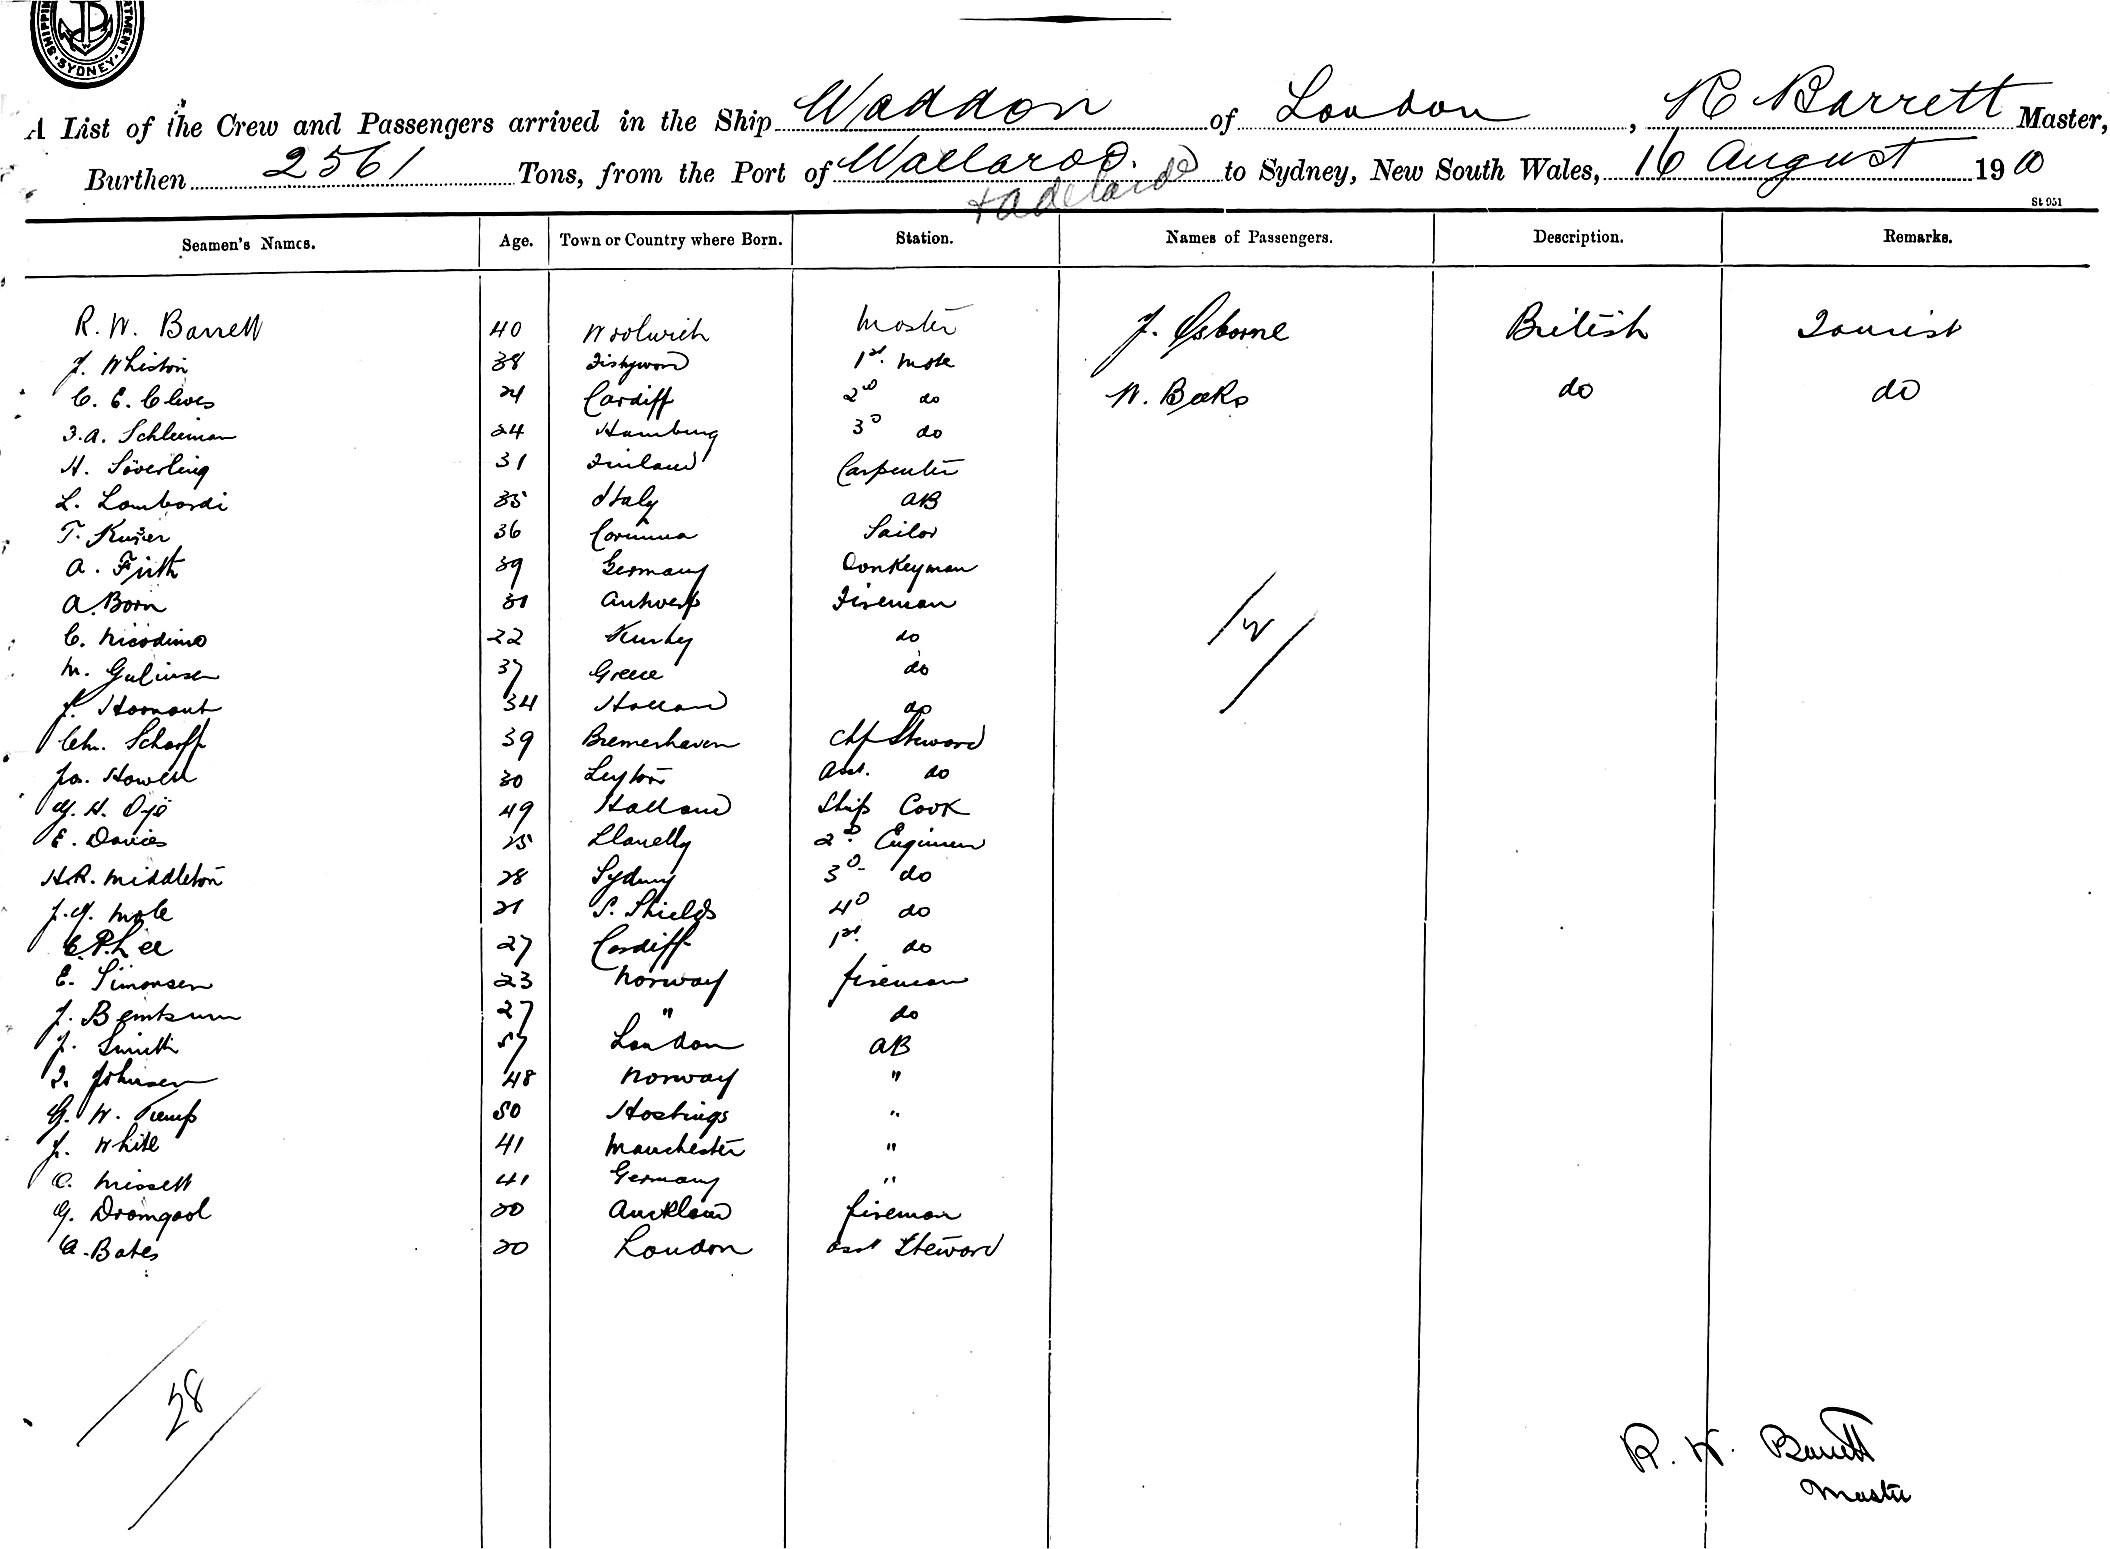 SHIPPING DEPARTMENT SYDNEY
A List of the Crew and Passengers arrived in the Ship Waddon of London, R Barrett Master,
Burthen 2561 Tons, from the Port of Wallaroo. to Sydney, New South Wales, 16 August 1910
+ adelaide
St 951
Seamen's Names. Age. Town or Country where Born. Station. Names of Passengers. Description. Remarks.
R. W. Barrett 40 Woolwich Master J. Osborne British Tourist
J. Whiston 38 1st. Mate
C. E. Clives 24 Cardiff 2D do W. Beeks do do
J. A. Schlieman 24 Hamburg 3D do
H. Söverling 31 Finland Carpenter
L. Lombardi 35 Italy AB
T. 36 Corunna Sailor
A. Firth 39 Germany Donkeyman
A. Born 31 Antwerp Fireman
C. Nicodimo 22 Turkey do
M. Gulinsen 37 Greece do
J. Hornout 34 Holland do
Chr. Scharff 39 Bremerhaven Chf Steward
Ja. Howell 30 Leyton Asst. do
H. 49 Holland Ship Cook
E. Davies 25 Llanelly 2D. Engineer
H.R. Middleton 28 Sydney 3D. do
J.Y. Mole 21 S. Shields 4D do
C.P. Lee 27 Cardiff 1st. do
E. Simonsen 23 Norway fireman
J. Berntsen 27 " do
J. Smith 57 London AB
J. Johnsen 48 Norway "
G. W. Tremp 50 Hastings "
J. White 41 Manchester "
O. Missett 41 Germany "
G. Dromgool 20 Auckland fireman
A. Bates 20 London asst Steward
/2/
/28/
R. W. Barrett
Master